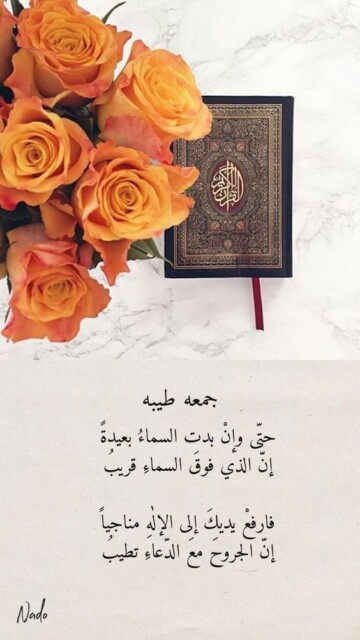 القرآن الكريم
جمعه طيبه
حتّى وإنْ بدتِ السماءُ بعيدةً
إنّ الذي فوقَ السماءِ قريبُ
فارفعْ يديكَ إلى الإلٰهِ مناجياً
إنّ الجروحَ معَ الدّعاءِ تطيبُ
Nado